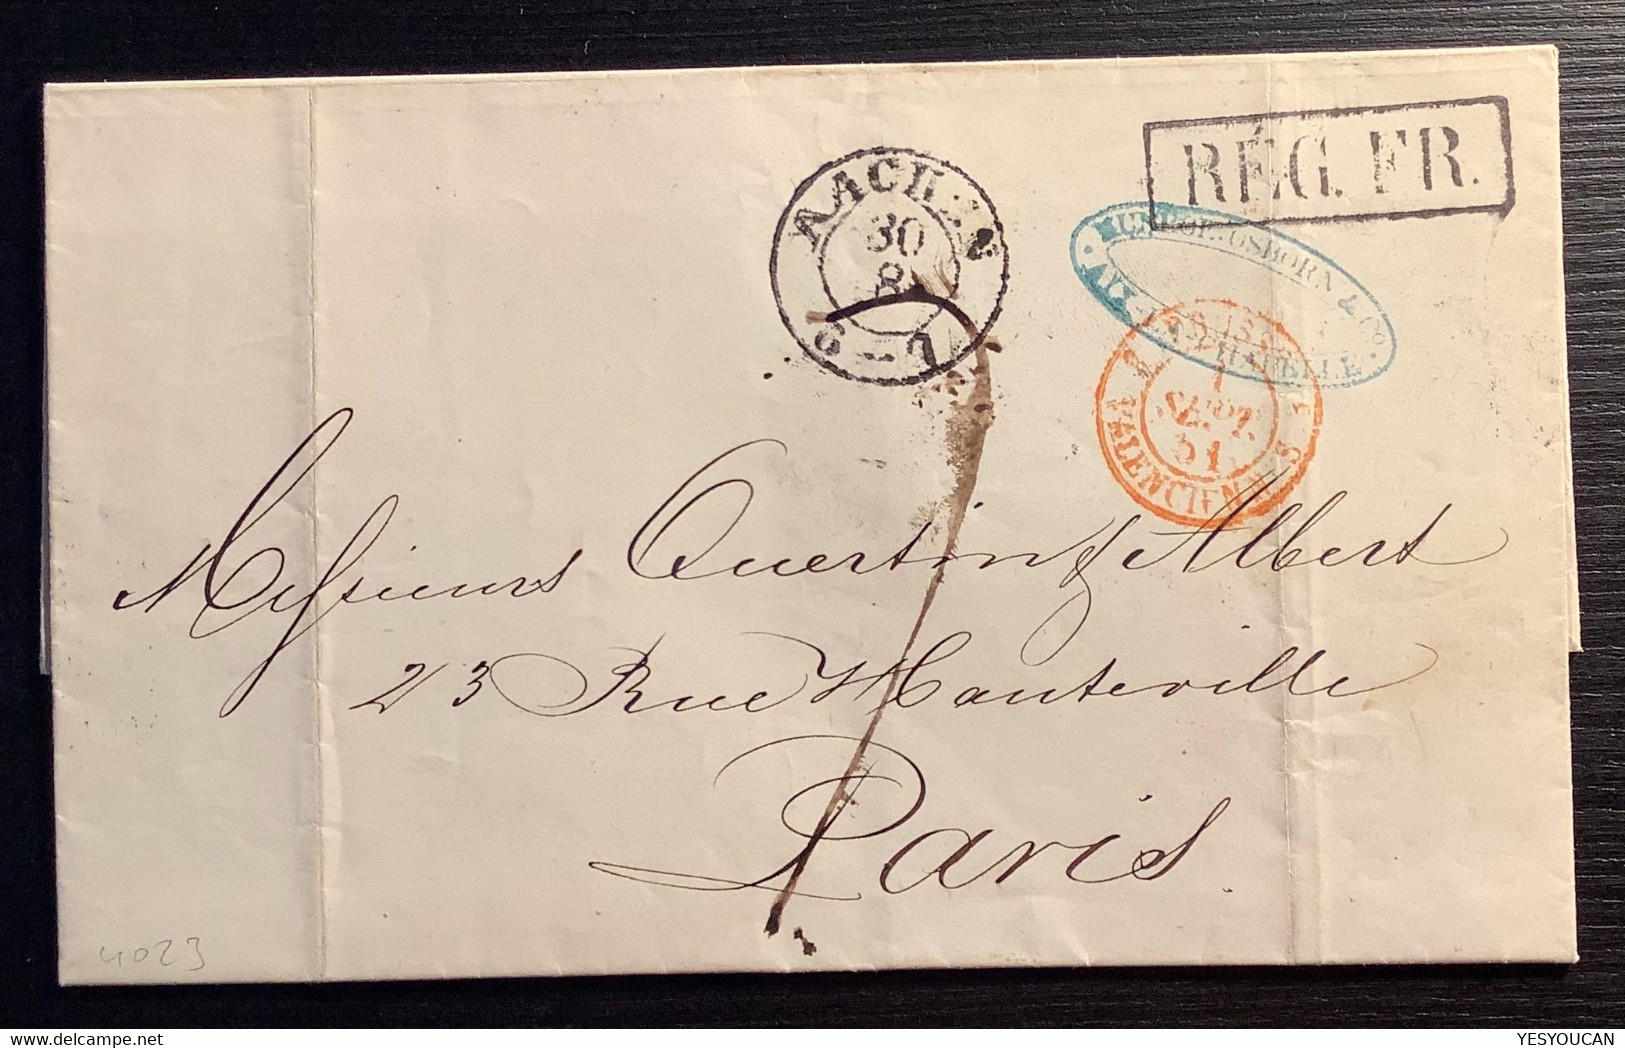 RÉG. FR.
AACHEN
30
8
OSBORN & Co
AIX-LA-CHAPELLE
1
SEPT.
51
VALENCIENNES
Messieurs Quertin & Albert
23 Rue Hauteville
Paris
4023
YESYOUCAN